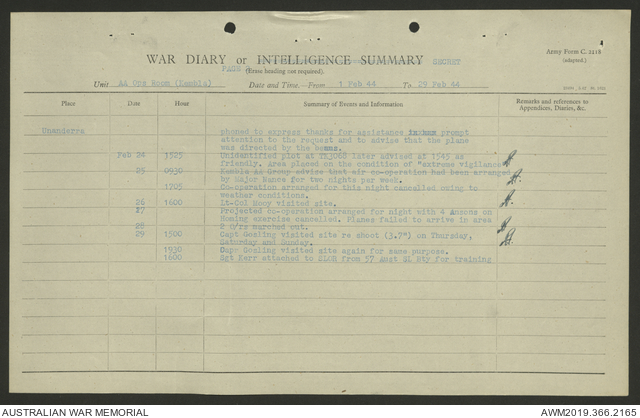 Army Form C. 2118
(adapted.)
WAR DIARY or INTELLIGENCE SUMMARY SECRET
PAGE
(Erase heading not required).
Unit AA Ops Room (Kembla) Date and Time.—From 1 Feb 44 To 29 Feb 44
Place Date Hour Summary of Events and Information Remarks and references to Appendices, Diaries, &c.
Unanderra phoned to express thanks for assistance prompt
attention to the request and to advise that the plane
was directed by the beams.
Feb 24 1525 Unidentified plot at later advised at 1545 as
friendly. Area placed on the condition of "extreme vigilance"
25 0930 Kembla AA Group advise that air co-operation had been arranged
by Major Nance for two nights per week.
1705 Co-operation arranged for this night cancelled owing to
weather conditions.
26 1600 Lt-Col visited site.
27 Projected co-operation arranged for night with 4 Ansons on
Homing exercise cancelled. Planes failed to arrive in area
28 2 o/rs marched out.
29 1500 Capt Gosling visited site re shoot (3.7") on Thursday,
Saturday and Sunday.
1930 Capt Gosling visited site again for same purpose.
1600 Sgt Kerr attached to from 57 Aust SL Bty for training
AUSTRALIAN WAR MEMORIAL
AWM2019.366.2165